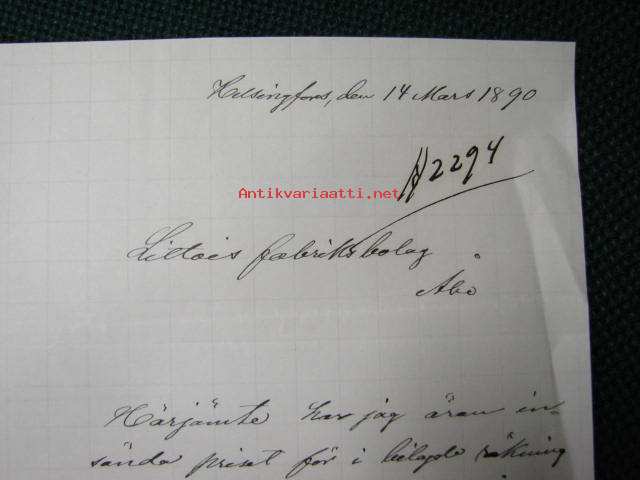 Helsingfors, den 14 Mars 1890
N 2294
Antikvariaatti.net
Littois fabriksbolag
Åbo
Härjämte har jag äran in-
sända priset för i bilagde räkning